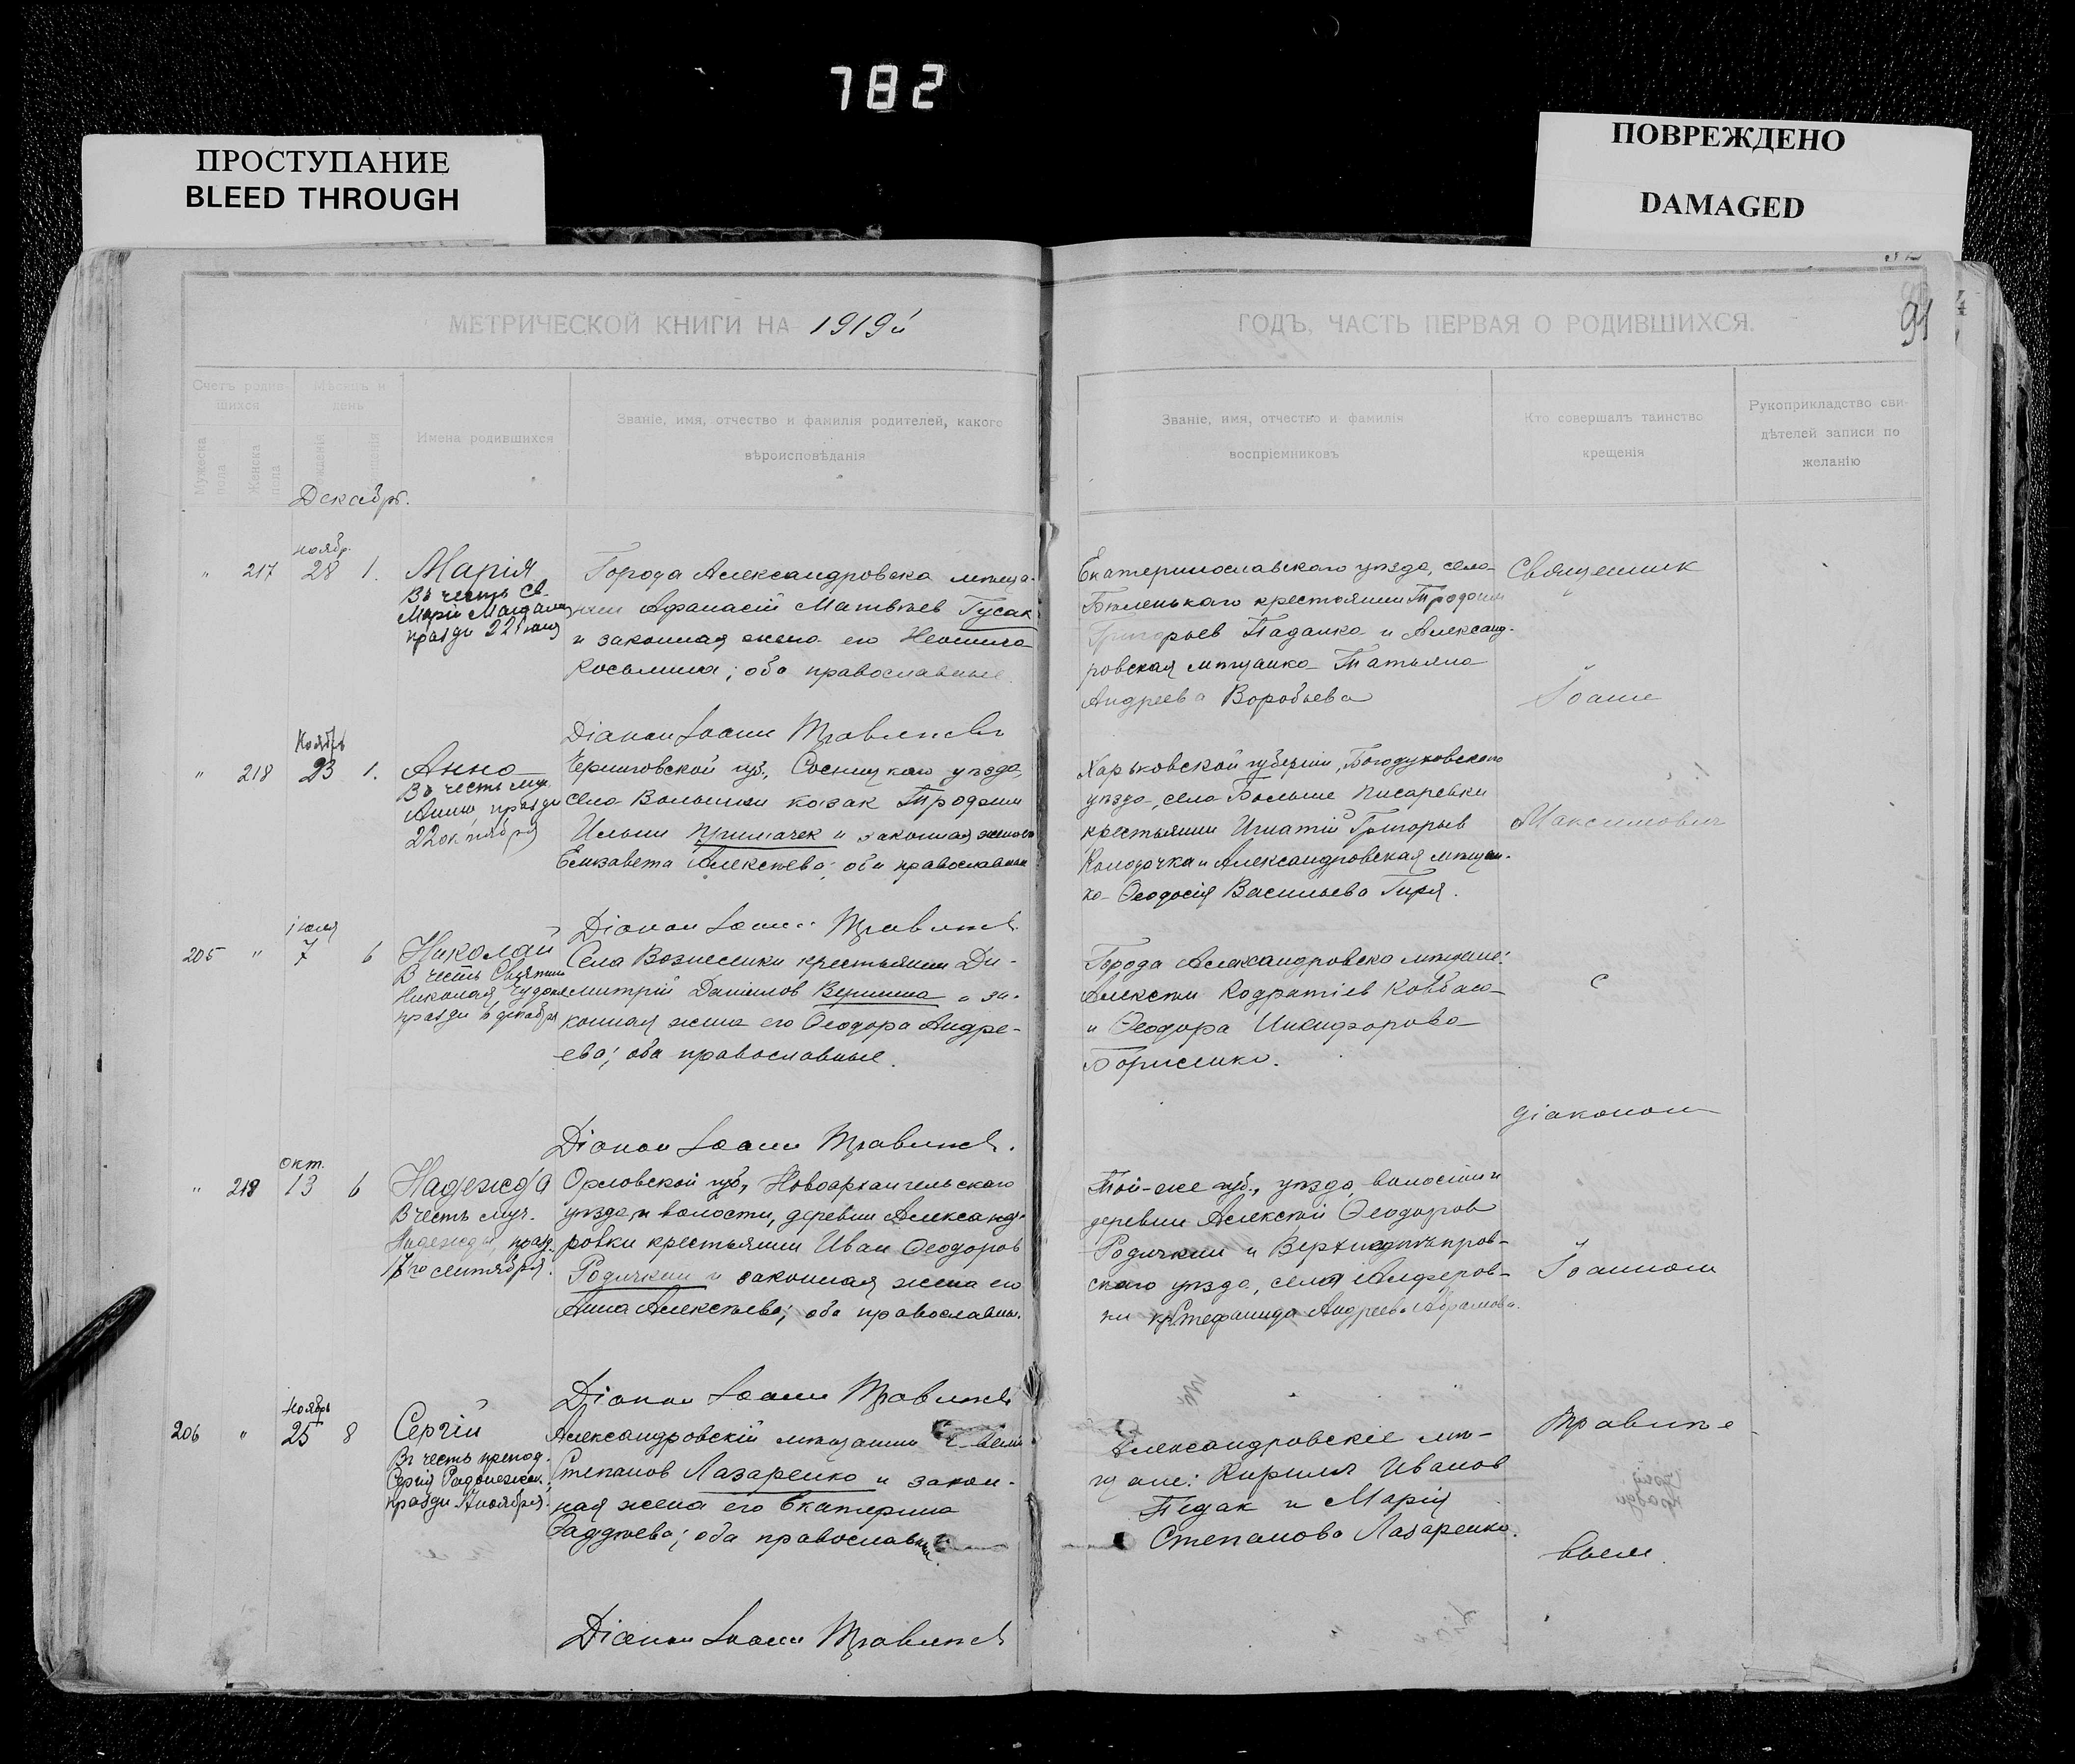 782
ПРОСТУПАНИЕ
BLEED THROUGH
ПОВРЕЖДЕНО
DAMAGED
91
МЕТРИЧЕСКОЙ КНИГИ НА 1919й
ГОДЪ, ЧАСТЬ ПЕРВАЯ О РОДИВШИХСЯ.
Счетъ родив-
шихся
Мѣсяцъ и
день
Мужеска
пола
Женска
пола
рожденія
крещенія
Имена родившихся
Званіе, имя, отчество и фамилія родителей, какого
вѣроисповѣданія
Званіе, имя, отчество и фамилія
воспріемниковъ
Кто совершалъ таинство
крещенія
Рукоприкладство сви-
дѣтелей записи по
желанію
Декабрь.
ноябр.
" 217 28 1.
Марія
Въ честь Св.
Маріи Магдалин
празди 22 іюля
Города Александровска мѣща-
нин Афанасій Матвѣев Гусак
и законная жена его Неонила
Косьмина; оба православные.
Діакон Іоанн Травинев
Екатеринославского уѣзда, села
Бѣленькаго крестьянин Трофим
Григорьев Падалка и Александ-
ровская мѣщанка Татьяна
Андреева Воробьева
Священник
Іоанн
Ноябрь
" 218 23 1.
Анна
Въ честь муч.
Анны, празди
22 октября
Черниговской губ., Сосницкаго уѣзда,
села Волынки казак Трофим
Ильин Примачек и законная жена его
Елизавета Алексѣева; оба православные
Діакон Іоанн Травинев
Харьковской губерніи, Богодуховского
уѣзда, села Больше Писаревки
крестьянин Игнатій Григорьев
Колодочка и Александровская мѣщан-
ка Ѳеодосія Васильева Гиря.
Максимович
іюля
205 " 7 6
Николай
В честь Святит
Николая Чудо
празди 6 декабря
Села Вознесенки крестьянин Ди-
митрій Даніилов Вершина и за-
конная жена его Ѳеодора Андре-
ева; оба православные.
Діакон Іоанн Травинев.
Города Александровска мѣщане:
Алексѣй Кодратіев Ковбаса
и Ѳеодора Никифорова
Борисенко.
с
діаконом
окт.
" 219 13 6
Надежда
В честь муч.
Надежды, празд.
17го сентября.
Орловской губ., Новоархангельскаго
уѣзда и волости, деревни Александ-
ровки крестьянин Иван Ѳеодоров
Родичкин и законная жена его
Анна Алексѣева; оба православн.
Діакон Іоанн Травинев
Той-же губ., уѣзда, волости и
деревни Алексѣй Ѳеодоров
Родичкин и Верхнеднѣпров-
скаго уѣзда, села Алферов-
ки кр. Стефанида Андреева Абрамова.
Іоанном
ноябрь
206 " 25 8
Сергій
Въ честь препод.
Сергія Радонежск.
празди ноября.
Александровскій мѣщанин
Степанов Лазаренко и закон-
ная жена его Екатерина
Фаддѣева; оба православные
Діакон Іоанн Травинев
Александровскіе мѣ-
щане: Кирилл Иванов
Педак и Марія
Степанова Лазаренко.
Травине-
вым.